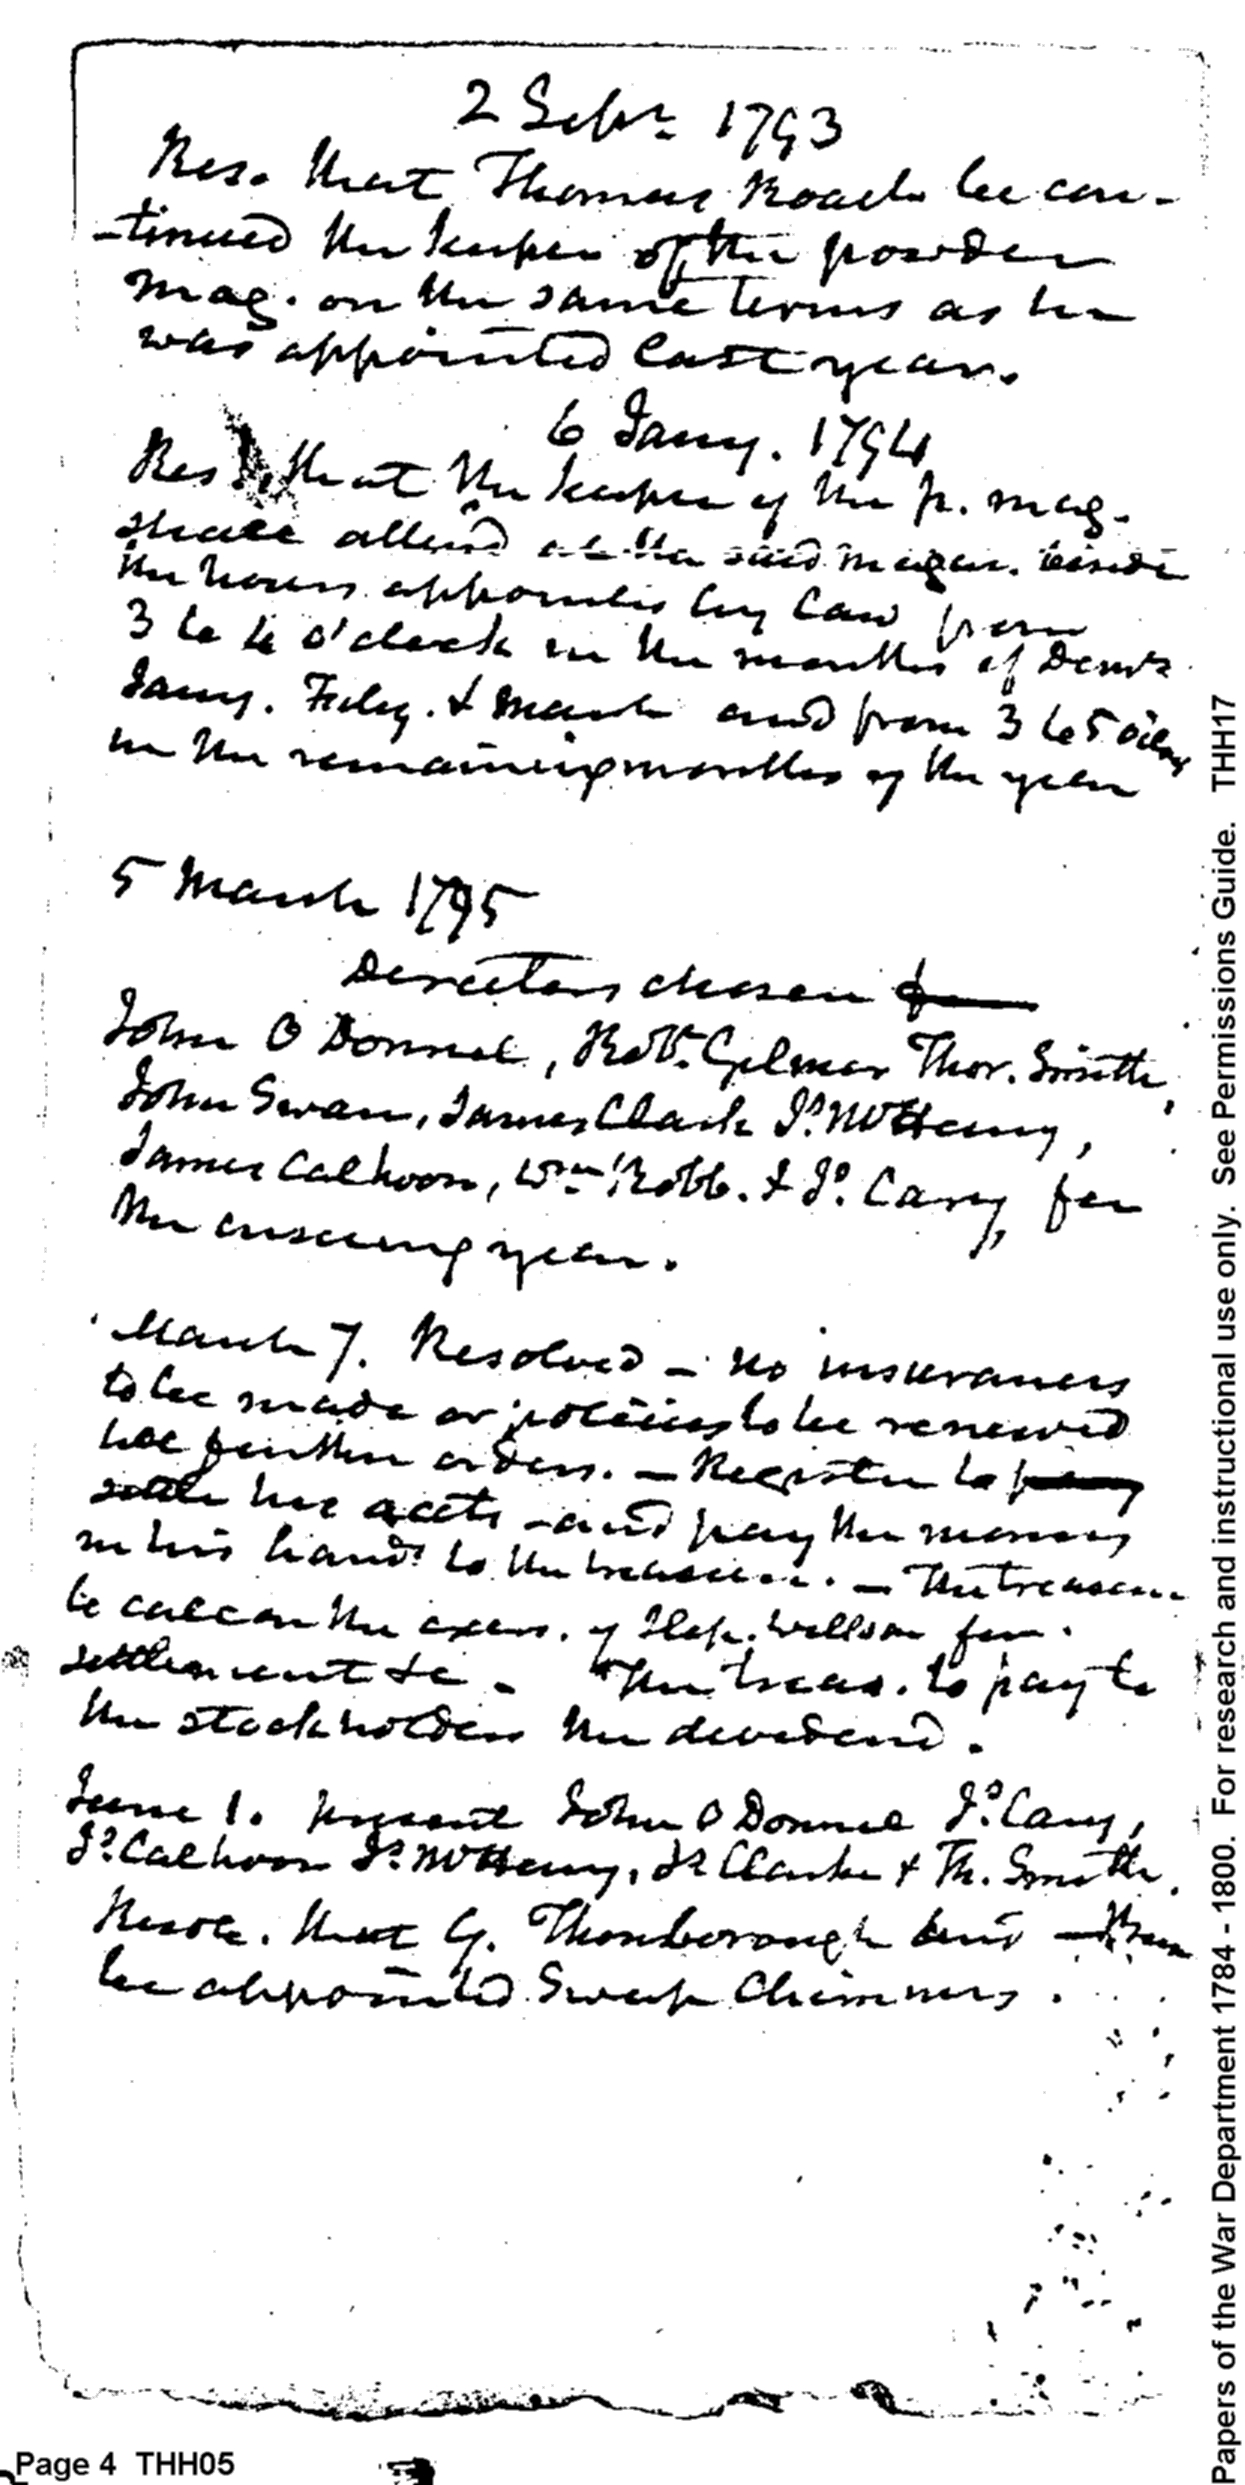 2 Sepr. 1793
Res. that Thomas Roach be con-
-tinued the keeper of the powder
mag. on the same terms as he
was appointed last year.
6 Jany. 1794
Resd. that the keeper of the p. mag.
shall attend at the said magaz. beside
the hours appointed by law from
3 to 4 o'clock in the months of Decmr.
Jany. Feby. & March and from 3 to 5 oclock
in the remaining months of the year
5 March 1795
Directors chosen
John O Donnel, Robt. Gilmor Thor. Smith,
John Swan, James Clark Js. McHenry,
James Calhoon, Wm. Robb. & Js. Carey, for
the ensuing year.
March 7. Resolved - no insurances
to be made or policies to be renewed
till further orders. - Register to
settle his accts - and pay the money
in his hands to the treasurer. - The treasurer
to call on the exers. of Step. Willson for
settlement &c - The treas. to pay to
the stockholders the dividend.
June 1. present John O Donnel Js. Cary,
Js. Calhoon Js. McHenry, Js Clarke & Th. Smith.
Resol. that G. Thornborough and
be appointed Sweep Chimneys.
Page 4 THH05
Papers of the War Department 1784 - 1800. For research and instructional use only. See Permissions Guide. THH17